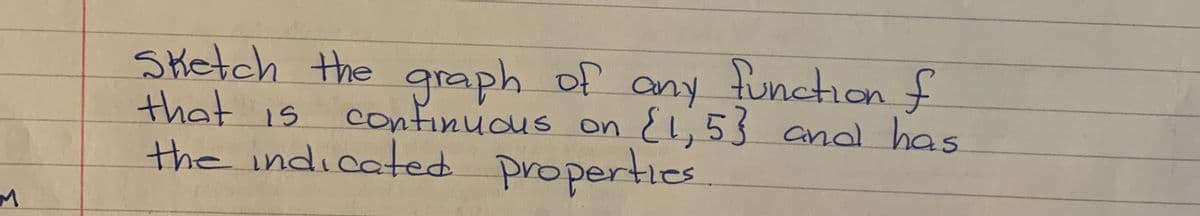 Sketch the graph of any function f
that is continuous on {1,5} and has
the indicated properties.
M